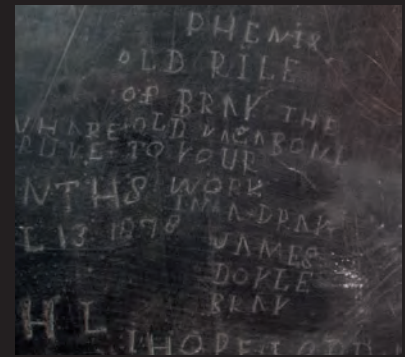 PHENIX
OLD RILE
OF BRAY THE
OLD VAGABOND
TO YOUR
NTHS WORK
L 13 1878
JAMES
DOYLE
BRAY
H L
I HOPE